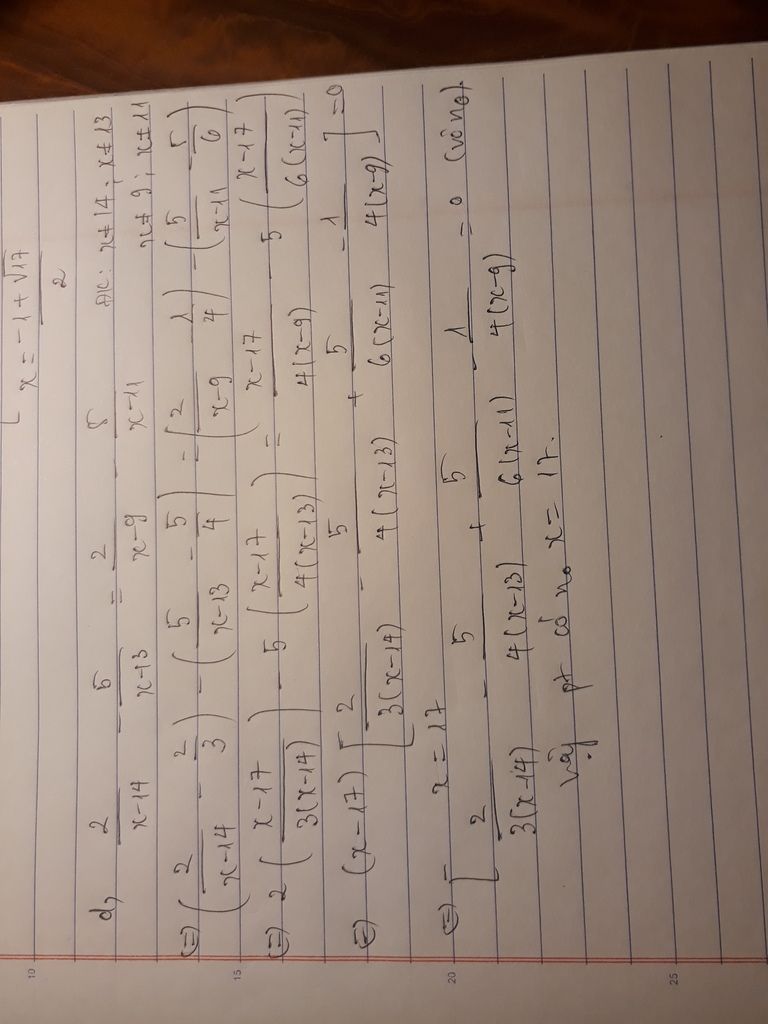 x = (-1 + √17)/2
d, 2/(x-14) - 5/(x-13) = 2/(x-9) - 5/(x-11) ĐK: x ≠ 14; x ≠ 13
x ≠ 9; x ≠ 11
(=) (2/(x-14) - 2/3) - (5/(x-13) - 5/4) = (2/(x-9) - 1/4) - (5/(x-11) - 5/6)
(=) 2 ((x-17)/(3(x-14))) - 5 ((x-17)/(4(x-13))) = (x-17)/(4(x-9)) - 5 ((x-17)/(6(x-11)))
(=) (x-17) [2/(3(x-14)) - 5/(4(x-13)) + 5/(6(x-11)) - 1/(4(x-9))] = 0
(=) [ x = 17
2/(3(x-14)) - 5/(4(x-13)) + 5/(6(x-11)) - 1/(4(x-9)) = 0 (vô no)
Vậy pt có no x = 17.
10
15
20
25